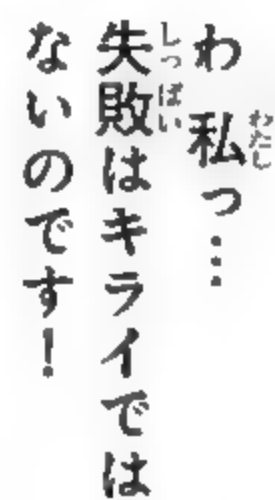 わ 私っ…
失敗はキライでは
ないのです！